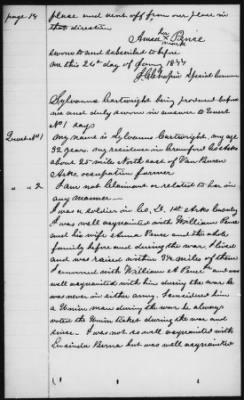 page 14
please and went off from our place in
that direction
her
Amea x Price
mark
sworn to and subscribed to before
me this 26th day of Jany 1877
J C Chapin Special Comm
Sylvanus Cartwright being produced before
me and duly sworn in answer to Quest
No 1 says
Quest No 1 my name is Sylvanus Cartwright, my age
32 years my residence in Crawford Co Ark
about 25 miles North east of Van Buren
Ark, occupation farmer
" " 2 I am not Claimant or related to her in
any manner
I was a soldier in Co, D, 1st Ark Cavalry
I was well acquainted with William Price
and his wife Anna Price and the whole
family before and during the war. I live
and was raised within 3¼ miles of them
I conversed with William A Price and was
well acquainted with him during the war he
was never in either army. I considered him
a Union man during the war he always
voted the Union ticket during the war and
since. I was not so well acquainted with
Lucinda but was well acquainted